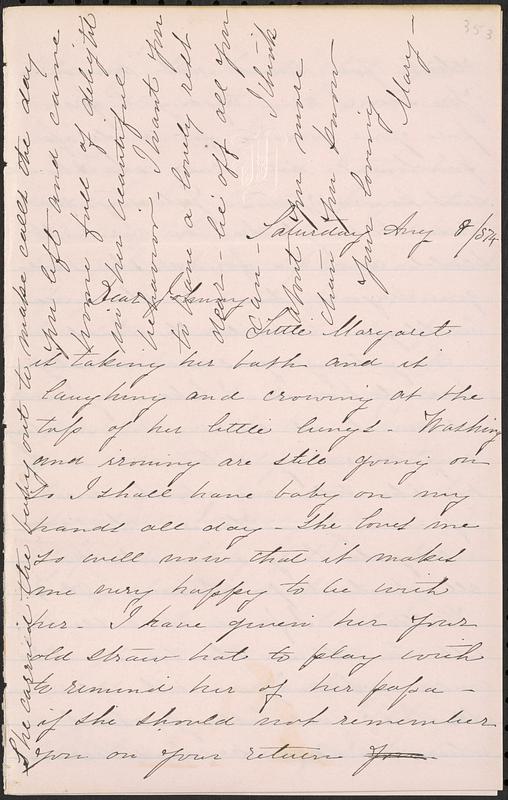 353
Saturday Aug 8/874
Dear Johnny
Little Margaret
is taking her bath and is
laughing and crowing at the
top of her little lungs - Washing
and ironing are still going on
So I shall have baby on my
hands all day - She loves me
so well now that it makes
me very happy to be with
her - I have given her your
old straw hat to play with
to remind her of her papa -
if she should not remember
you on your return
She carried the baby out to make calls the day
you left and came
home full of delight
in her beautiful
behavior - I want you
to have a lovely rest
dear - lie off all you
can - I think
about you more
than you know
Your loving Mary -